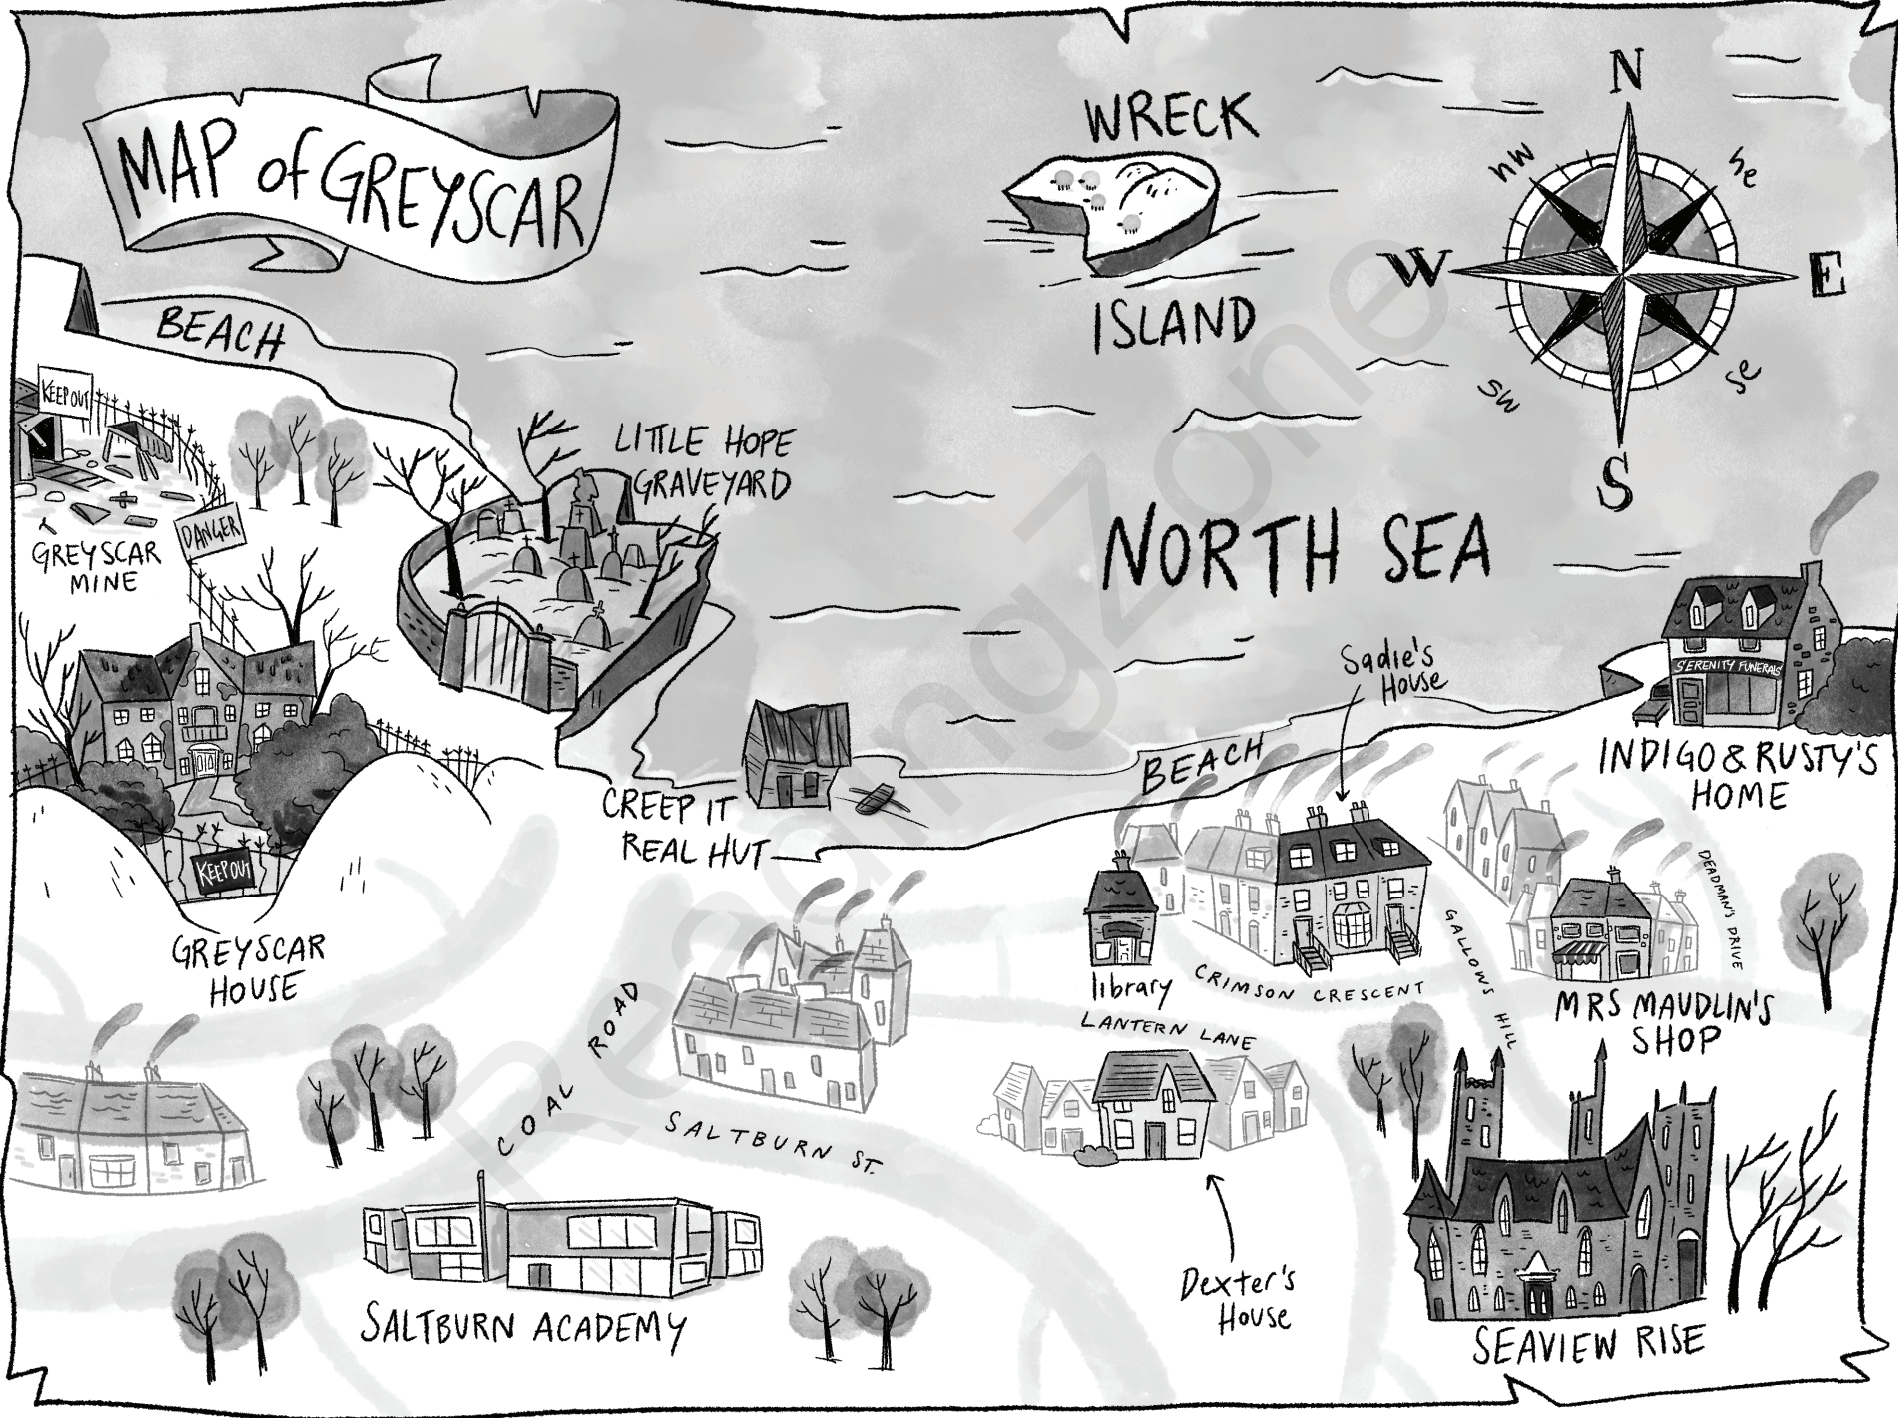 MAP of GREYSCAR
WRECK
ISLAND
N
nw
ne
W
E
sw
se
S
BEACH
KEEP OUT
GREYSCAR
MINE
DANGER
LITTLE HOPE
GRAVEYARD
NORTH SEA
Sadie's
House
SERENITY FUNERALS
INDIGO & RUSTY'S
HOME
BEACH
CREEP IT
REAL HUT
KEEP OUT
GREYSCAR
HOUSE
library
CRIMSON CRESCENT
LANTERN LANE
GALLOWS HILL
DEADMAN'S DRIVE
MRS MAUDLIN'S
SHOP
COAL ROAD
SALTBURN ST.
SALTBURN ACADEMY
Dexter's
House
SEAVIEW RISE
ReadingZone